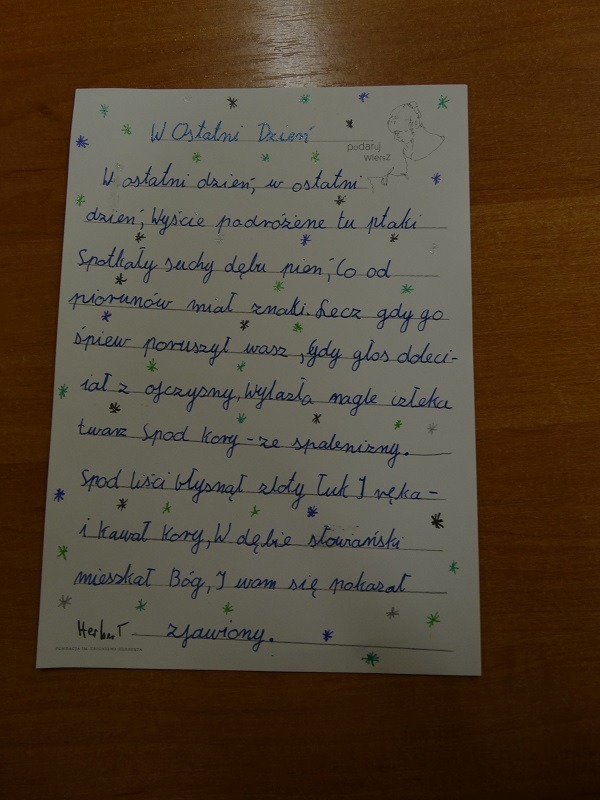 W Ostatni Dzień
podaruj
wiersz
W ostatni dzień, w ostatni
dzień, Wyście podróżene tu ptaki
Spotkały suchy dębu pień, Co od
piorunów miał znaki. Lecz gdy go
śpiew poruszył wasz, Gdy głos doleci-
iał z ojczyzny, Wylazła nagle człeka
twarz Spod kory - ze spalenizny.
Spod liści błysnął złoty łuk I ręka -
i kawał kory, W dębie słowiański
mieszkał Bóg, I wam się pokazał
Herbert zjawiony.
FUNDACJA IM. ZBIGNIEWA HERBERTA